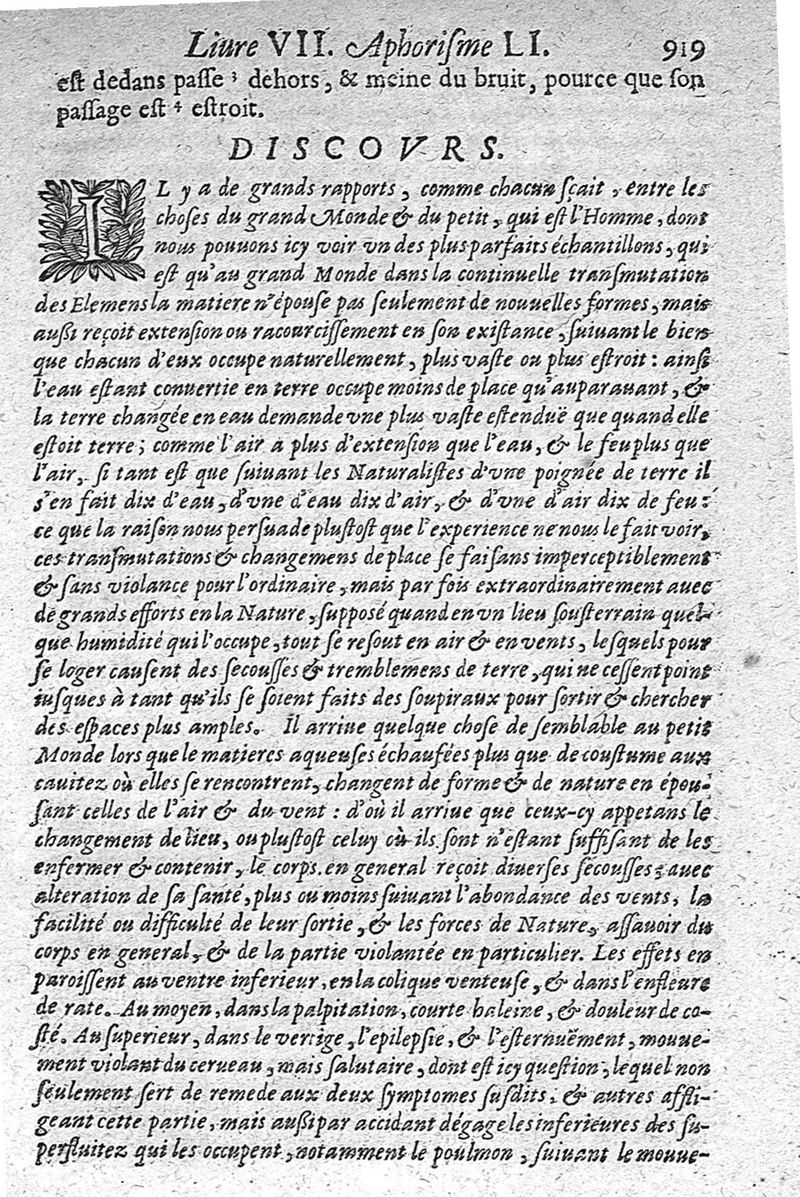 Liure VII. Aphorisme LI. 919
est dedans passe ³ dehors, & meine du bruit, pource que son
passage est ⁴ estroit.
DISCOVRS.
IL y a de grands rapports, comme chacun sçait, entre les
choses du grand Monde & du petit, qui est l'Homme, dont
nous pouuons icy voir vn des plus parfaits échantillons, qui
est qu'au grand Monde dans la continuelle transmutation
des Elemens la matiere n'épouse pas seulement de nouuelles formes, mais
aussi reçoit extension ou racourcissement en son existance, suiuant le bien
que chacun d'eux occupe naturellement, plus vaste ou plus estroit : ainsi
l'eau estant conuertie en terre occupe moins de place qu'auparauant, &
la terre changée en eau demande vne plus vaste estenduë que quand elle
estoit terre ; comme l'air à plus d'extension que l'eau, & le feu plus que
l'air, si tant est que suiuant les Naturalistes d'vne poignée de terre il
s'en fait dix d'eau, d'vne d'eau dix d'air, & d'vne d'air dix de feu :
ce que la raison nous persuade plustost que l'experience ne nous le fait voir,
ces transmutations & changemens de place se faisans imperceptiblement
& sans violance pour l'ordinaire, mais par fois extraordinairement auec
de grands efforts en la Nature, supposé quand en vn lieu sousterrain quel-
que humidité qui l'occupe, tout se resout en air & en vents, lesquels pour
se loger causent des secousses & tremblemens de terre, qui ne cessent point
iusques à tant qu'ils se soient faits des soupiraux pour sortir & chercher
des espaces plus amples. Il arriue quelque chose de semblable au petit
Monde lors que le matieres aqueuses échaufées plus que de coustume aux
cauitez où elles se rencontrent, changent de forme & de nature en épou-
sant celles de l'air & du vent : d'où il arriue que ceux-cy appetans le
changement de lieu, ou plustost celuy où ils sont n'estant suffisant de les
enfermer & contenir, le corps en general reçoit diuerses secousses ; auec
alteration de sa santé, plus ou moins suiuant l'abondance des vents, la
facilité ou difficulté de leur sortie, & les forces de Nature, assauoir du
corps en general, & de la partie violantée en particulier. Les effets en
paroissent au ventre inferieur, en la colique venteuse, & dans l'enfleure
de rate. Au moyen, dans la palpitation, courte haleine, & douleur de co-
sté. Au superieur, dans le vertige, l'epilepsie, & l'esternuëment, mouue-
ment violant du cerueau, mais salutaire, dont est icy question, lequel non
seulement sert de remede aux deux symptomes susdits, & autres affli-
geant cette partie, mais aussi par accidant dégage les inferieures des su-
perfluitez qui les occupent, notamment le poulmon, suiuant le mouue-